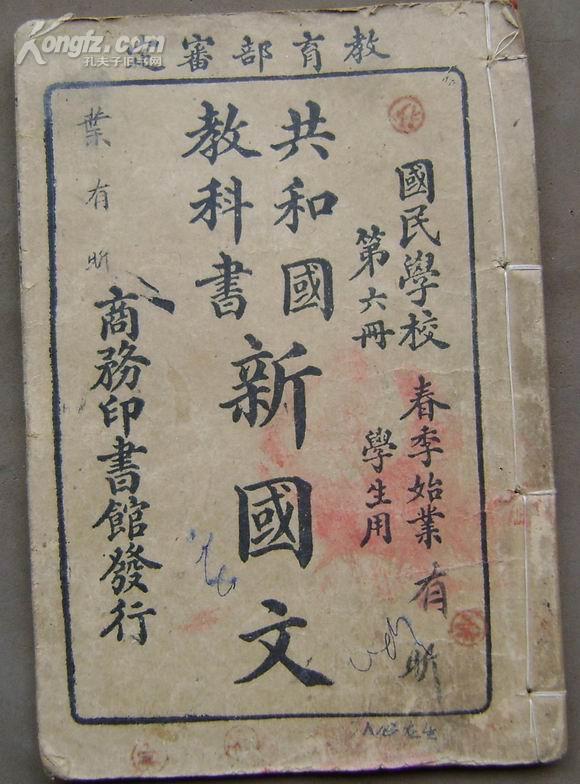 Kongfz.com
孔夫子旧书网
教育部審定
國民學校 春季始業
第六冊 學生用
共和國
教科書
新國文
商務印書館發行
葉有昕
有昕